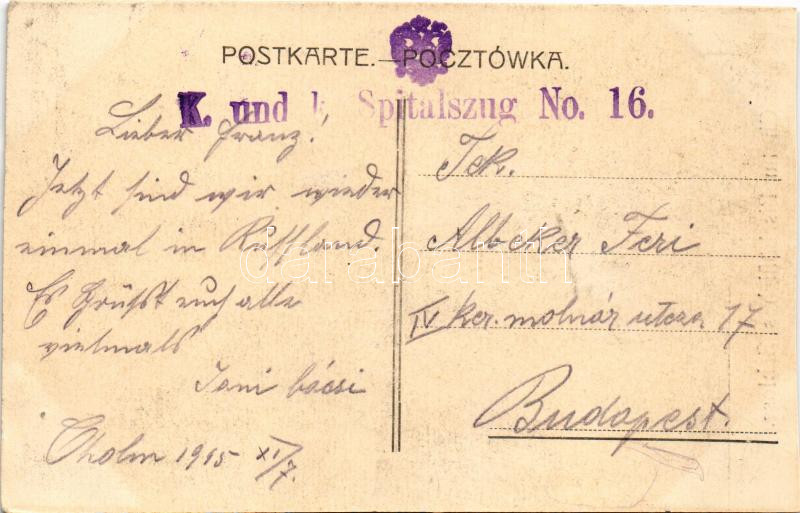 POSTKARTE.—POCZTÓWKA.
K. und k. Spitalszug No. 16.
Lieber Franz!
Jetzt sind wir wieder
einmal in Russland.
Es Grüsst euch alle
vielmals
Joni bácsi
Cholm 1915 XI/7.
Tek.
Albeker Feri
IV ker. molnár utcza 17.
Budapest.
darabanth